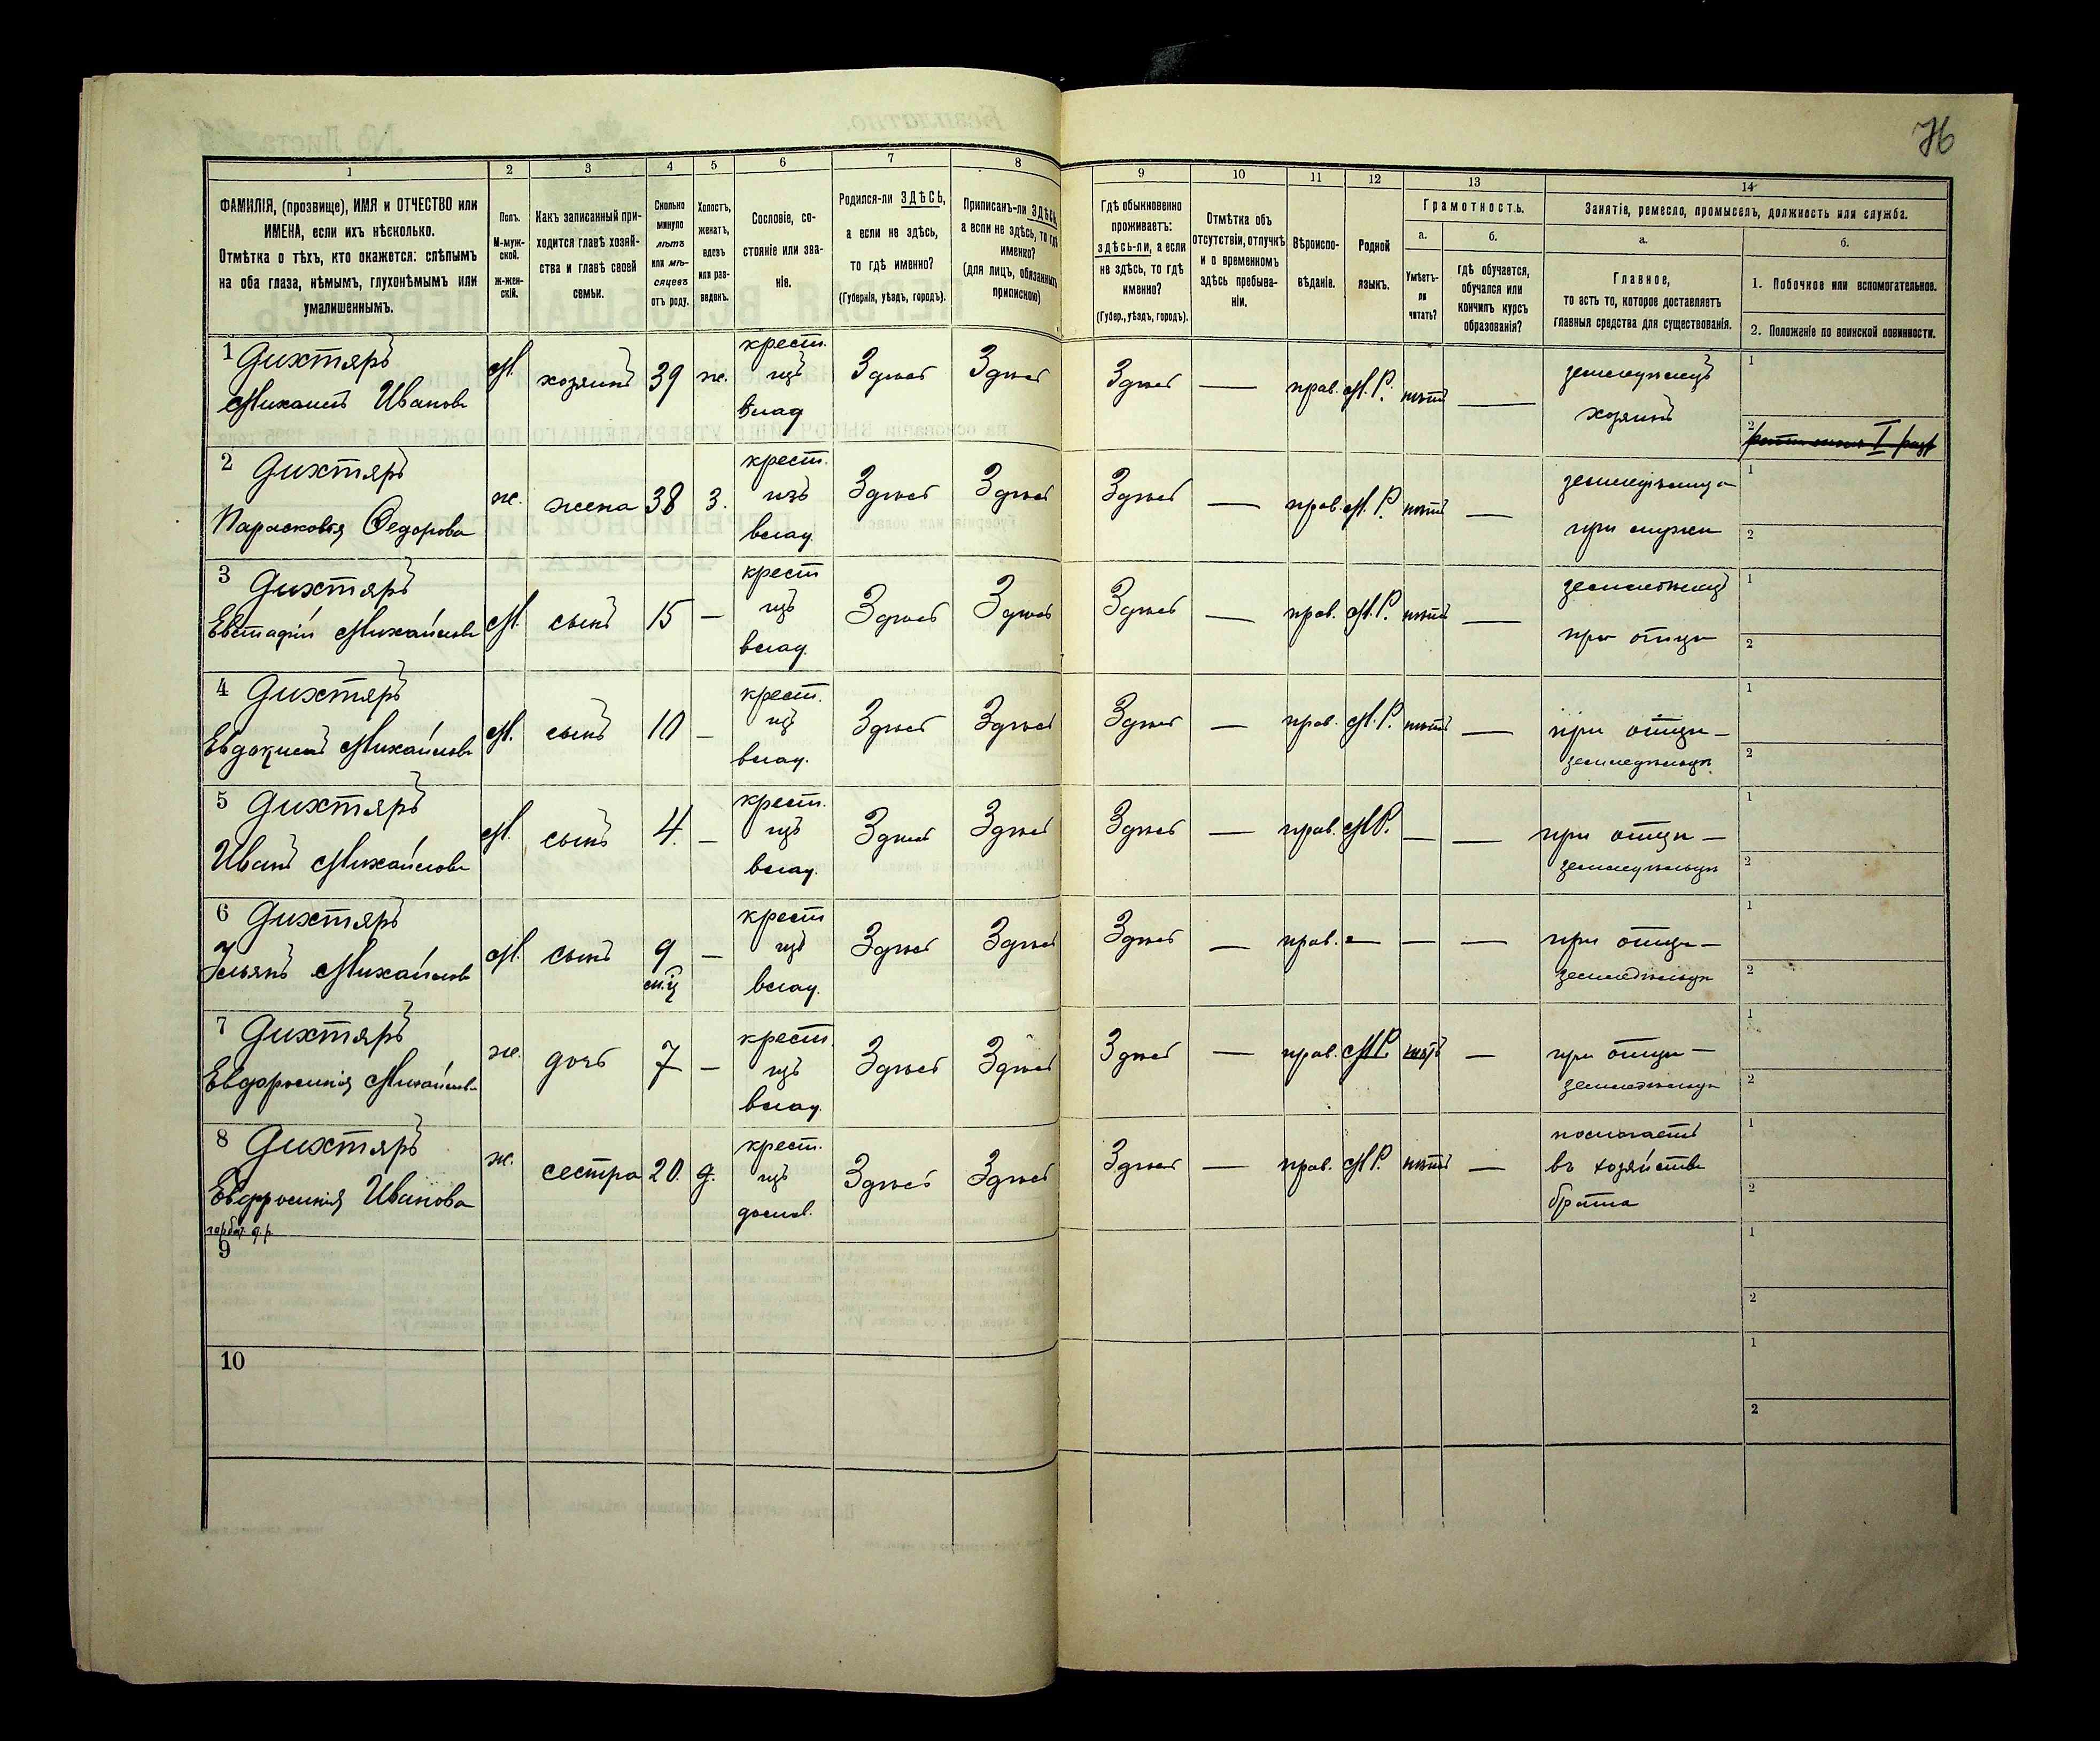 76
1
2
3
4
5
6
7
8
9
10
11
12
13
14
ФАМИЛІЯ, (прозвище), ИМЯ и ОТЧЕСТВО или
ИМЕНА, если ихъ нѣсколько.
Отмѣтка о тѣхъ, кто окажется: слѣпымъ
на оба глаза, нѣмымъ, глухонѣмымъ или
умалишеннымъ.
Полъ.
М-муж-
ской.
Ж-жен-
скій.
Какъ записанный при-
ходится главѣ хозяй-
ства и главѣ своей
семьи.
Сколько
минуло
лѣтъ
или мѣ-
сяцевъ
отъ роду.
Холостъ,
женатъ,
вдовъ
или раз-
веденъ.
Сословіе, со-
стояніе или зва-
ніе.
Родился-ли ЗДѢСЬ,
а если не здѣсь,
то гдѣ именно?
(Губернія, уѣздъ, городъ).
Приписанъ-ли ЗДѢСЬ,
а если не здѣсь, то гдѣ
именно?
(для лицъ, обязанныхъ
припискою)
Гдѣ обыкновенно
проживаетъ:
здѣсь-ли, а если
не здѣсь, то гдѣ
именно?
(Губер., уѣздъ, городъ).
Отмѣтка объ
отсутствіи, отлучкѣ
и о временномъ
здѣсь пребыва-
ніи.
Вѣроиспо-
вѣданіе.
Родной
языкъ.
Грамотность.
а.
Умѣетъ-
ли
читать?
б.
гдѣ обучается,
обучался или
кончилъ курсъ
образованія?
Занятіе, ремесло, промыселъ, должность или служба.
а.
Главное,
то есть то, которое доставляетъ
главныя средства для существованія.
б.
1. Побочное или вспомогательное.
2. Положеніе по воинской повинности.
1 Дихтяръ
Михаилъ Ивановъ
М. хозяинъ 39 ж. крест. изъ влад Здѣсь Здѣсь Здѣсь — прав. М.Р. нѣтъ — земледѣлецъ хозяинъ
1
2
2 Дихтяръ
Парасковья Федорова
ж. жена 38 з. крест. изъ влад. Здѣсь Здѣсь Здѣсь — прав. М.Р. нѣтъ — при мужѣ
1
2
3 Дихтяръ
Евстафій Михайловъ
М. сынъ 15 — крест изъ влад. Здѣсь Здѣсь Здѣсь — прав. М.Р. нѣтъ — земледѣлецъ при отцѣ
1
2
4 Дихтяръ
Евдокимъ Михайловъ
М. сынъ 10 — крест. изъ влад. Здѣсь Здѣсь Здѣсь — прав. М.Р. нѣтъ — при отцѣ — земледѣльцѣ
1
2
5 Дихтяръ
Иванъ Михайловъ
М. сынъ 4. — крест. изъ влад. Здѣсь Здѣсь Здѣсь — прав. М.Р. — — при отцѣ — земледѣльцѣ
1
2
6 Дихтяръ
Ульянъ Михайловъ
М. сынъ 9 м.ц — крест изъ влад. Здѣсь Здѣсь Здѣсь — прав. — — — при отцѣ — земледѣльцѣ
1
2
7 Дихтяръ
Евфросинія Михайлова
ж. дочь 7 — крест. изъ влад. Здѣсь Здѣсь Здѣсь — прав. М.Р. нѣтъ — при отцѣ — земледѣльцѣ
1
2
8 Дихтяръ
Евфросинія Иванова
ж. сестра 20. д. крест. изъ Здѣсь Здѣсь Здѣсь — прав. М.Р. нѣтъ — помогаетъ въ хозяйствѣ брата
1
2
9
1
2
10
1
2